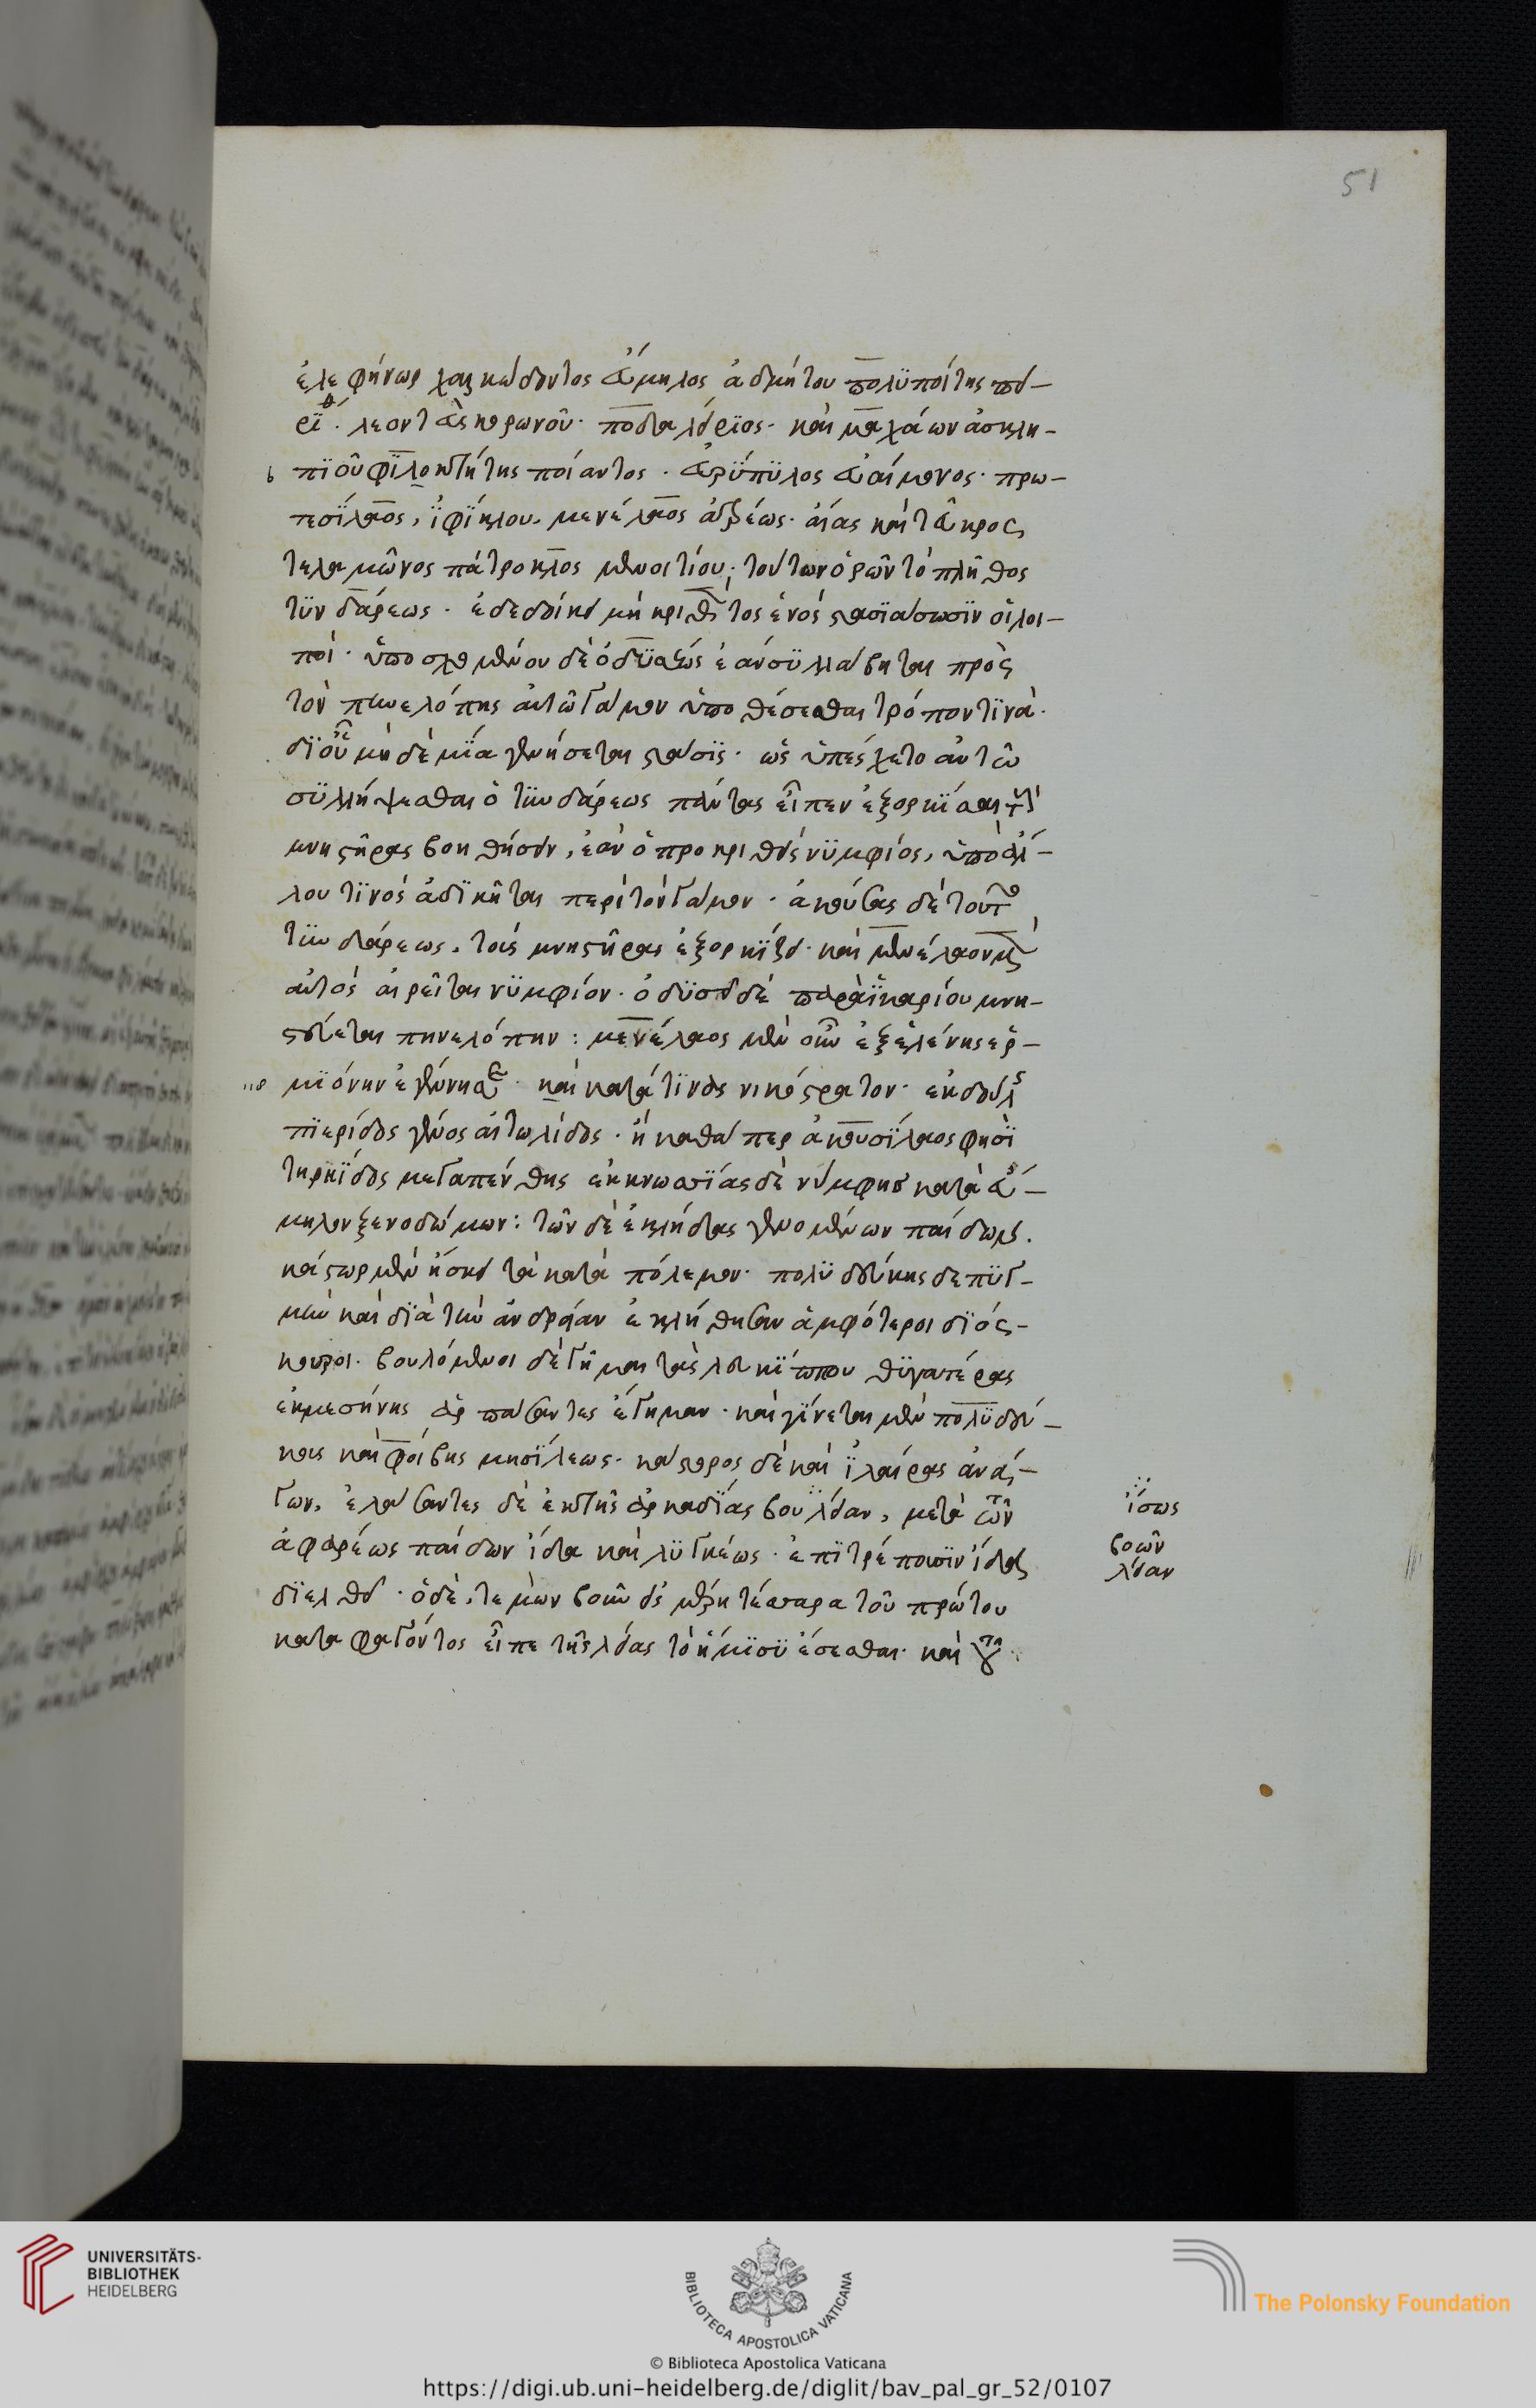 51
ἐλεφήνωρ χαλκώδοντος εὔμηλος ἀδμήτου πολϋποίτης πει-
ρϊθ. λεοντεὺς κορωνοῦ. ποδαλείρϊος. καὶ μαχάων ἀσκλη-
πϊοῦ φϊλοκτήτης ποίαντος. εὐρϋπϋλος εὐαίμονος. πρω-
τεσϊλαος, ϊφϊκλου. μενέλαος ἀτρέως. αἴας καὶ τεῦκρος
τελαμῶνος πάτροκλος μενοιτίου; τούτων ὁρῶν τὸ πλῆθος
τϋνδάρεως. ἐδεδοίκει μὴ κριθέντος ἑνός στασϊάσωσϊν οἱ λοι-
ποί. ὑποσχομένου δὲ ὀδϋσσέως ἐὰν σϋλλάβηται πρὸς
τὸν πηνελόπης αὐτῶ γάμον ὑποθέσεσθαι τρόπον τϊνὰ.
δϊ οὗ μὴ δὲ μϊα γενήσεται στάσϊς. ὡς ὑπέσχετο αὐτῶ
σϋλλήψεσθαι ὁ τϋνδάρεως πάντας εἶπεν ἐξορκϊσαι τοὺς
μνηστῆρας βοηθήσειν, ἐὰν ὁ προκριθεὶς νϋμφίος, ὑπὸ ἄλ-
λου τϊνός ἀδϊκῆται περὶ τὸν γάμον. ἀκούσας δὲ τοῦτο
τϋνδάρεως. τοὺς μνηστῆρας ἐξορκϊζει. καὶ μενέλαον μὲν
αὐτὸς αἱρεῖται νϋμφίον. ὀδϋσσεῖ δὲ παρὰ ϊκαρίου μνη-
στεύεται πηνελόπην: μενέλαος μὲν οὖν ἐξ ἑλένης ἑρ-
μϊόνην ἐγέννησε. καὶ κατά τϊνας νικόστρατον. ἐκ δούλης
πϊερίδος γένος αἰτωλίδος. ἢ καθάπερ ἀκουσϊλαος φησϊ
τηρηΐδος μεγαπένθης ἐκ κνωσσϊας δὲ νύμφης κατὰ εὔ-
μηλον ξενοδώμων: τῶν δὲ ἐκ λήδας γενομένων παίδων.
κάστωρ μὲν ἤσκει τὰ κατὰ πόλεμον. πολϋδεύκης δὲ πϋγ-
μὴν καὶ δϊὰ τὴν ἀνδρείαν ἐκλήθησαν ἀμφότεροι δϊός-
κουροι. βουλόμενοι δὲ γῆμαι τὰς λευκϊππου θϋγατέρας
ἐκ μεσήνης ἁρπάσαντες ἔγημαν. καὶ γϊνεται μὲν πολϋδεύ-
κους καὶ φοίβης μνησϊλεως. κάστορος δὲ καὶ ϊλαίρας ἀνώ-
γων. ἐλάσαντες δὲ ἐκ τῆς ἀρκαδϊας βουλείαν, μετὰ τῶν
ἀφαρέως παίδων ἴδα καὶ λϋγκέως. ἐπϊτρέπουσϊν ἴδα
δϊελθεῖ. ὁ δὲ, τεμὼν βοῦν εἰς μέρη τέσσαρα τοῦ πρώτου
καταφαγόντος εἶπε τῆς λείας τὸ ἥμϊσϋ ἔσεσθαι. καὶ
ἴσως
βοῶν
λείαν
UNIVERSITÄTS-
BIBLIOTHEK
HEIDELBERG
BIBLIOTECA APOSTOLICA VATICANA
© Biblioteca Apostolica Vaticana
The Polonsky Foundation
https://digi.ub.uni-heidelberg.de/diglit/bav_pal_gr_52/0107